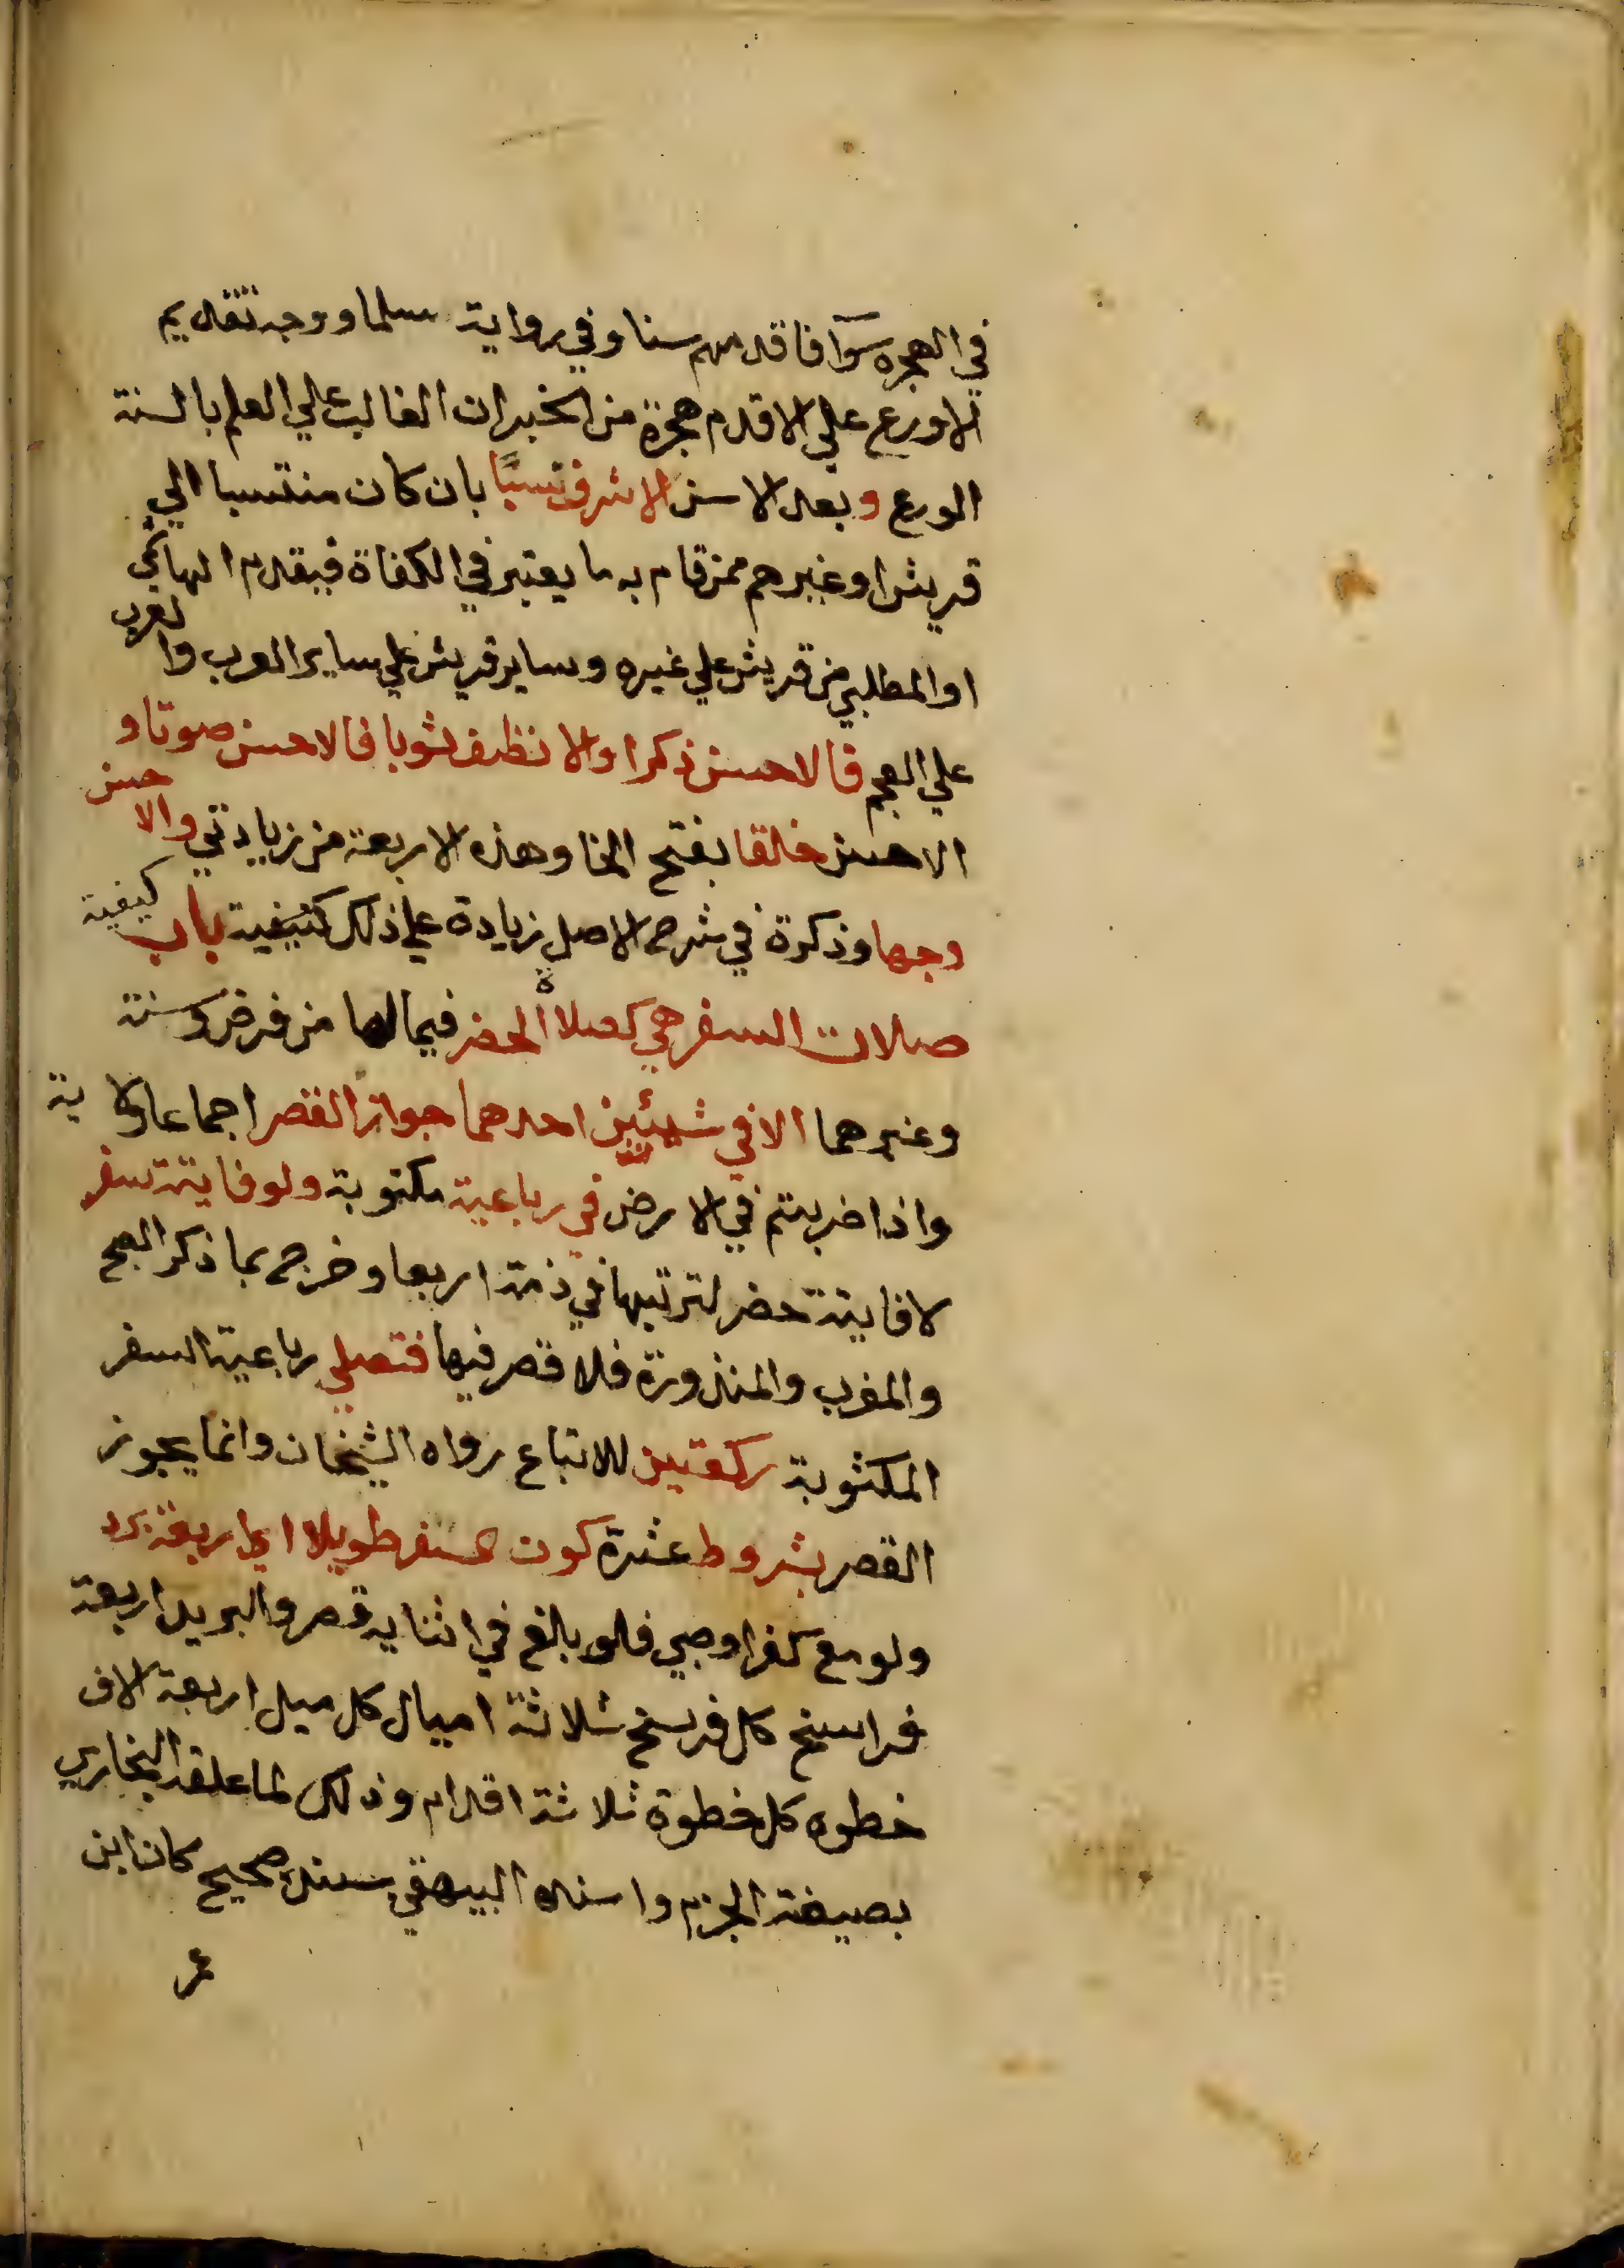 في الهجره سوآ فاقدمهم سنا وفي رواية سلما ووجه تقديم
الاورع علي الاقدم هجرة من الخبر ان الغالب علي العلم بالسنة
الورع وبعد الاسن الاشرف نسبًا بان كان منتسبا الي
قريش او غيرهم ممن قام به ما يعتبر في الكفاة فيقدم الهاشمي
او المطلبي من قريش علي غيره وساير قريش علي ساير العرب والعرب
علي العجم فالاحسن ذكرا والانظف ثوبا فالاحسن صوتا و
الاحسن خلقا بفتح الخا وهذه الاربعة من زيادتي والاحسن
وجها وذكرة في شرح الاصل زيادة علي ذلك كيفية باب كيفية
صلات السفر هي كصلاة الحضر فيما لها من فرض وسنة
وغيرهما الا في شيئين احدهما جواز القصر اجماعا ولاية
واذا ضربتم في الارض في رباعية مكتوبة ولو فايتة سفر
لا فايتة حضر لترتبها في ذمته اربعا وخرج بما ذكر الصبح
والمغرب والمنذورة فلا قصر فيها فتصلي رباعية السفر
المكثوبة ركعتين للاتباع رواه الشيخان وانما يجوز
القصر بشروط عشرة كون السفر طويلا اي اربعة برد
ولو مع كفر او صبي فلو بلغ في اثنايه قصر والبريد اربعة
فراسخ كل فرسخ ثلاثة اميال كل ميل اربعة الاف
خطوه كل خطوة ثلاثة اقدام وذلك لما علقه البخاري
بصيغة الجزم واسنده البيهقي بسند صحيح كان ابن
عمر